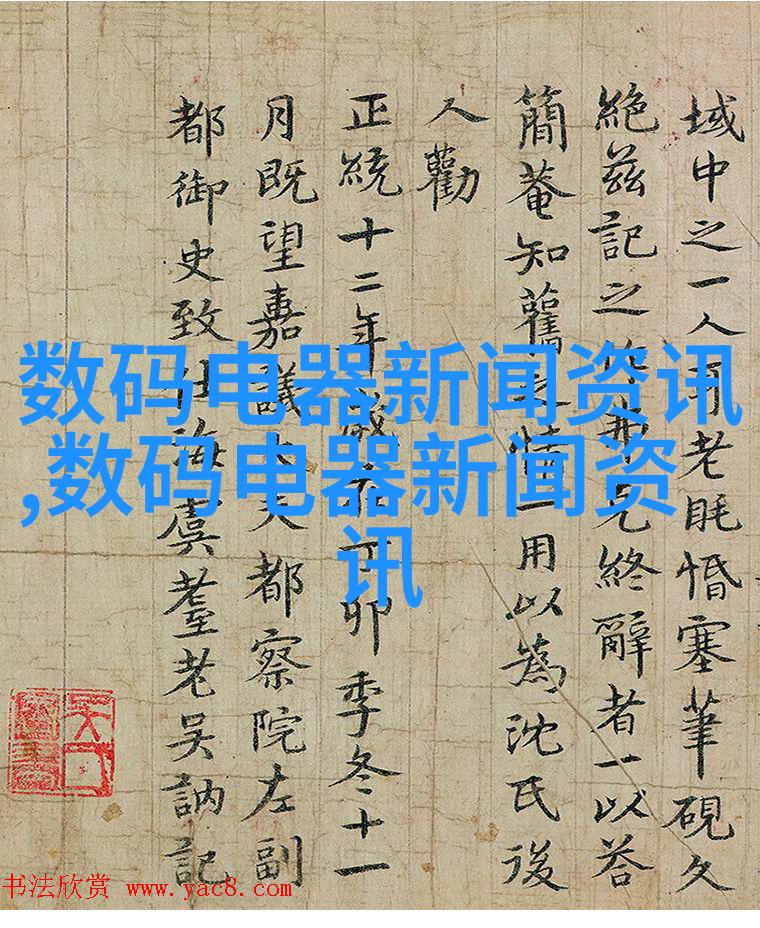 域中之一人耳老眊惛塞筆硯久
絶茲記之作弗克終辭者一以荅
簡菴知舊之情一用以為沈氏後
人勸
正統十二年歲在丁卯季冬十一
月既望嘉議大夫都察院左副
都御史致仕海虞耋老吳訥記
数码电器新闻资讯
,数码电器新闻资
讯
书法欣赏 www.yac8.com